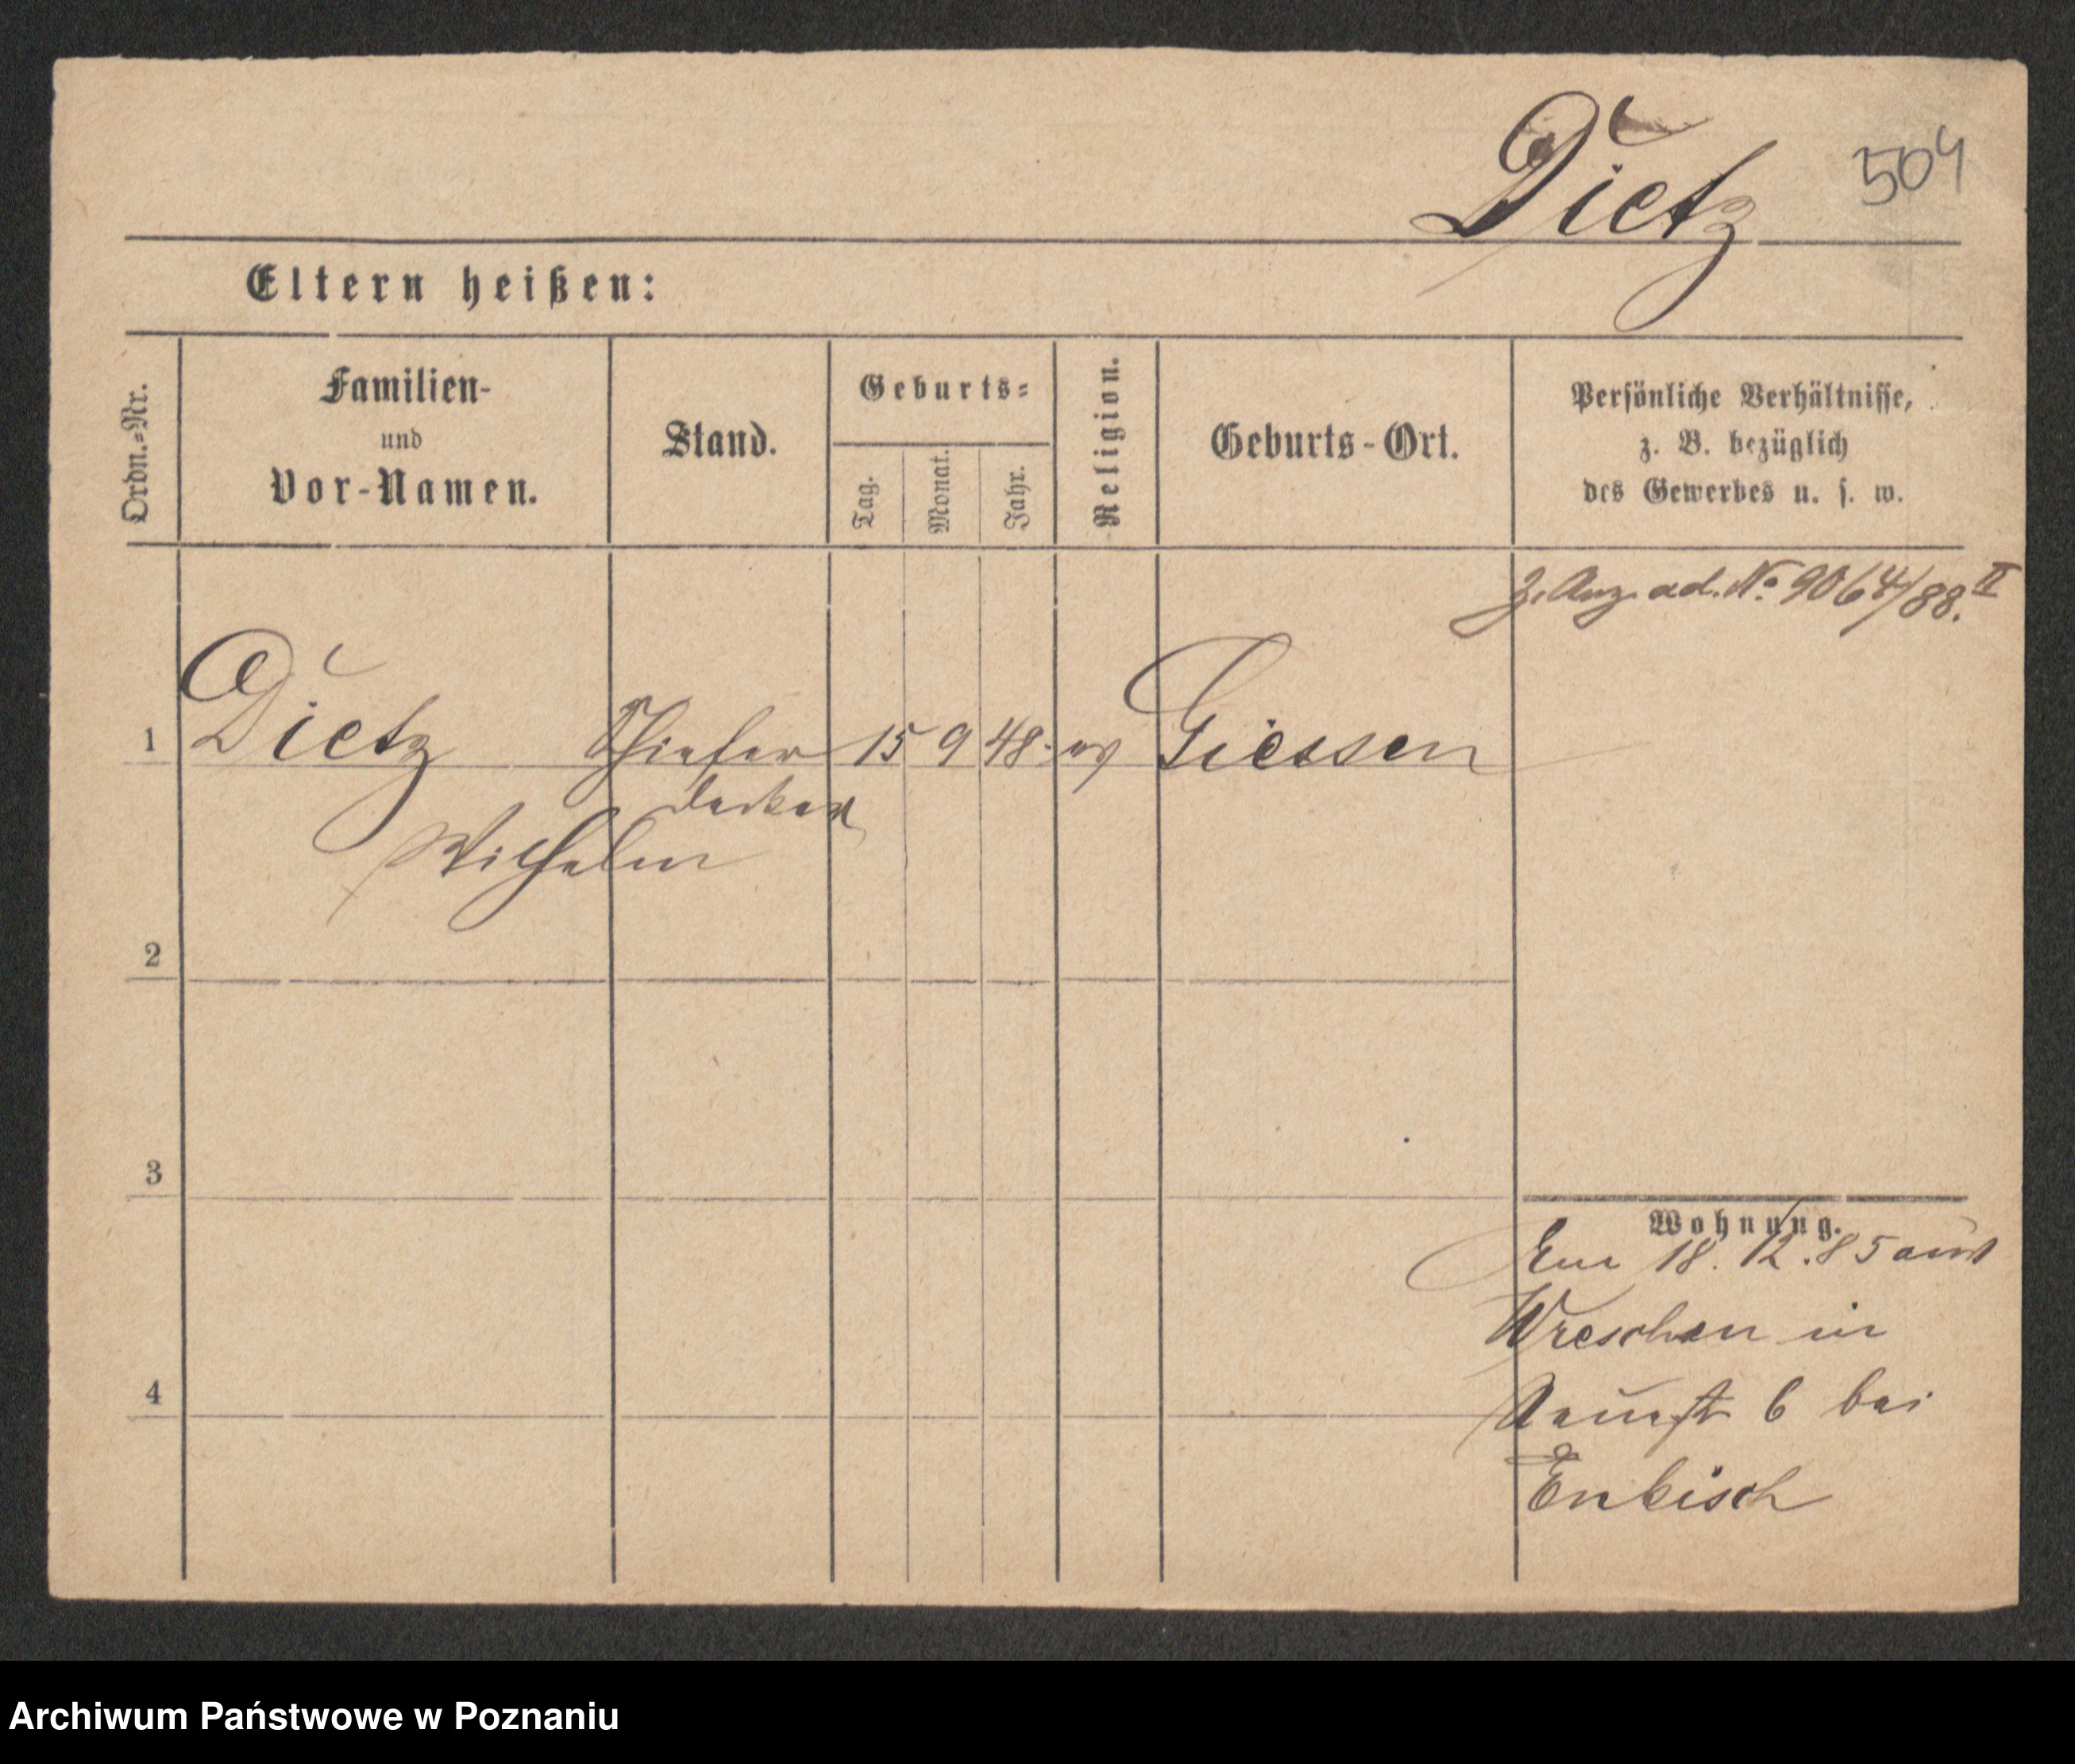 Dietz 504
Eltern heißen:
Ordn.=Nr.
Familien-
und
Vor-Namen.
Stand.
Geburts=
Tag.
Monat.
Jahr.
Religion.
Geburts-Ort.
Persönliche Verhältnisse,
z. B. bezüglich
des Gewerbes u. s. w.
Z. Anz. ad. No 9064/88. II
1 Dietz Schiefer 15 9 48. ev Giessen
decker
Wilhelm
2
3
4
Wohnung.
18. 12. 85 aus
Wreschen in
6 bei
Enkisch
Archiwum Państwowe w Poznaniu